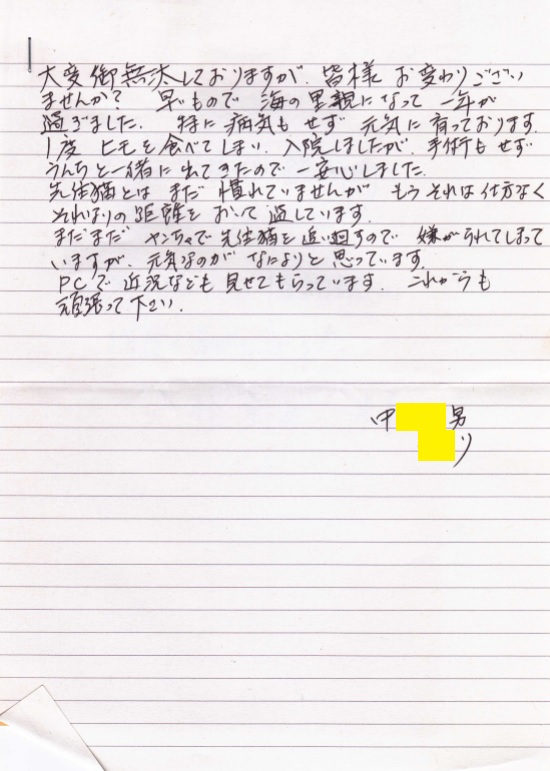 大変御無沙汰しておりますが、皆様 お変わりござい
ませんか? 早いもので 海の里親になって 一年が
過ぎました。 特に 病気も せず 元気に 育っております。
1度 ヒモを食べてしまい、入院しましたが、手術も せず
うんちと一緒に出てきたので 一安心しました。
先住猫とは まだ 慣れていませんが もう それは 仕方なく
それなりの 距離を おいて 過しています。
まだまだ ヤンちゃで 先住猫を 追い廻すので 嫌がられてしまって
いますが、元気なのが なによりと 思っています。
PCで 近況なども 見せてもらっています。 これからも
頑張って下さい。
中 男
り